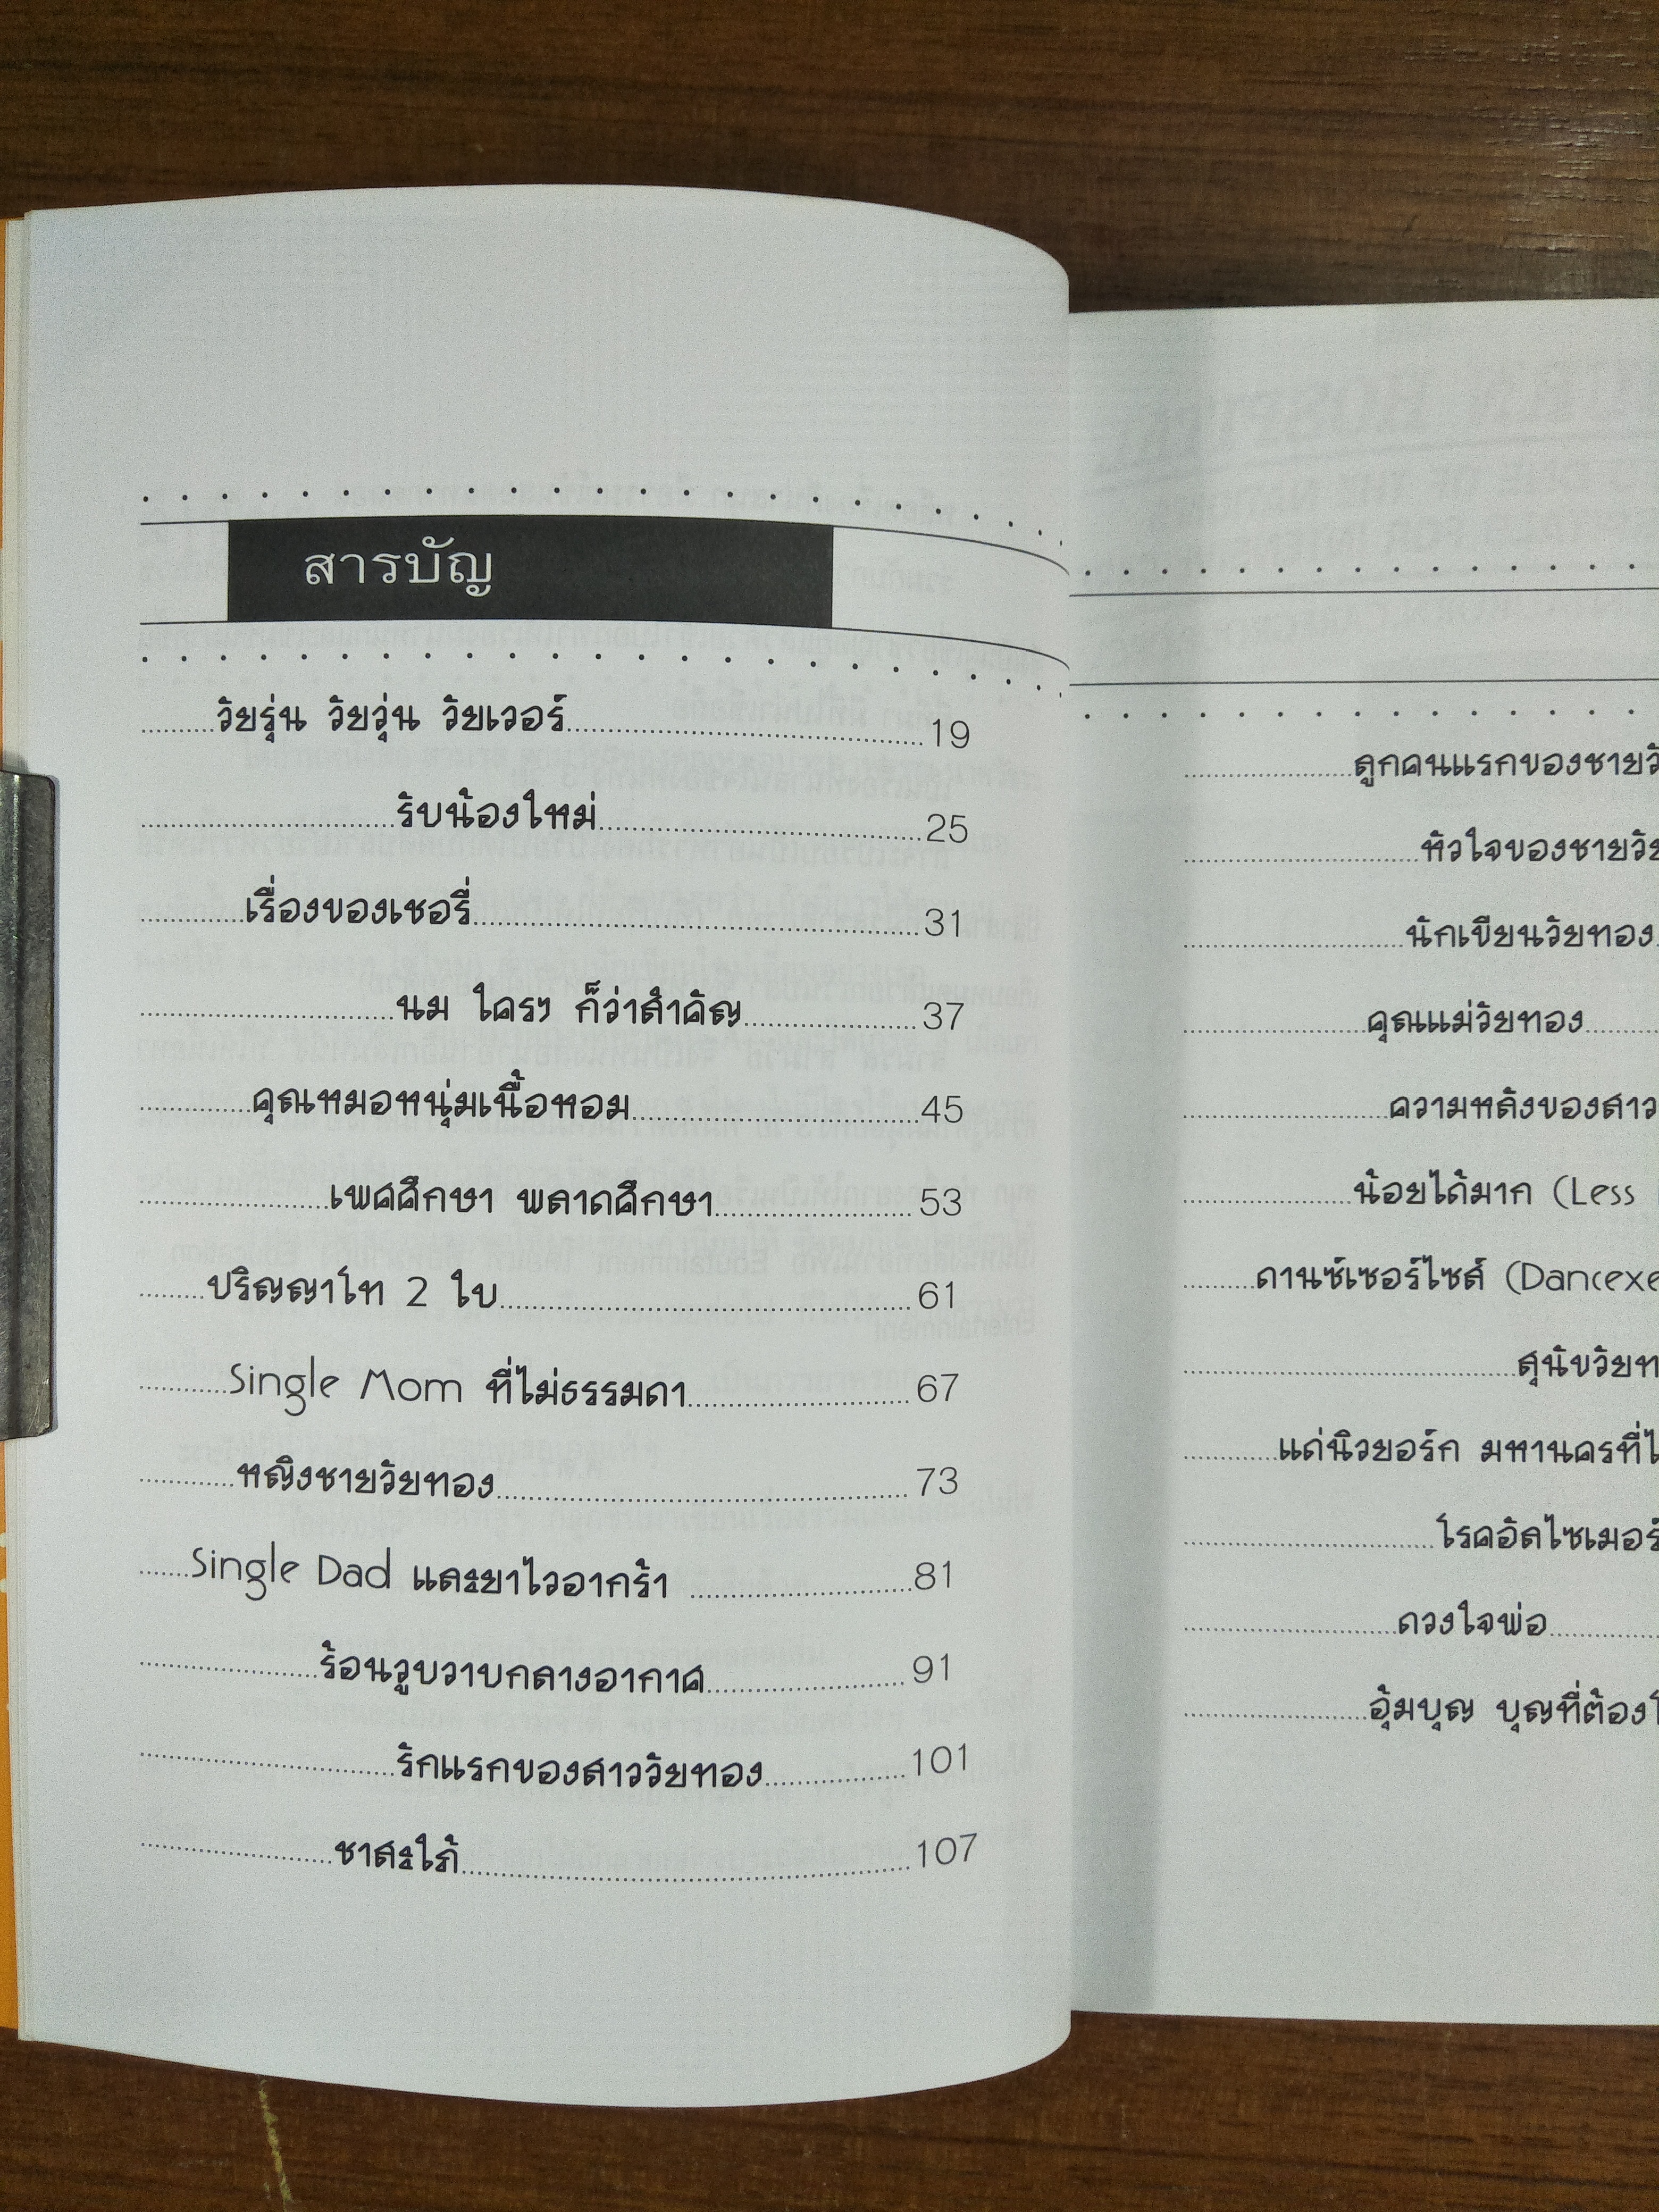 สารบัญ
วัยรุ่น วัยวุ่น วัยเวอร์ 19
รับน้องใหม่ 25
เรื่องของเชอรี่ 31
นม ใครๆ ก็ว่าสำคัญ 37
คุณหมอหนุ่มเนื้อหอม 45
เพศศึกษา พลาดศึกษา 53
ปริญญาโท 2 ใบ 61
Single Mom ที่ไม่ธรรมดา 67
หญิงชายวัยทอง 73
Single Dad และยาไวอากร้า 81
ร้อนวูบวาบกลางอากาศ 91
รักแรกของสาววัยทอง 101
ชาละใภ้ 107
ลูกคนแรกของชายวั
หัวใจของชายวัย
นักเขียนวัยทอง
คุณแม่วัยทอง
ความหลังของสาว
น้อยได้มาก (Less
ดานซ์เซอร์ไซส์ (Dancexe
สุนัขวัยท
แด่นิวยอร์ก มหานครที่ไ
โรคอัลไซเมอร์
ดวงใจพ่อ
อุ้มบุญ บุญที่ต้อง